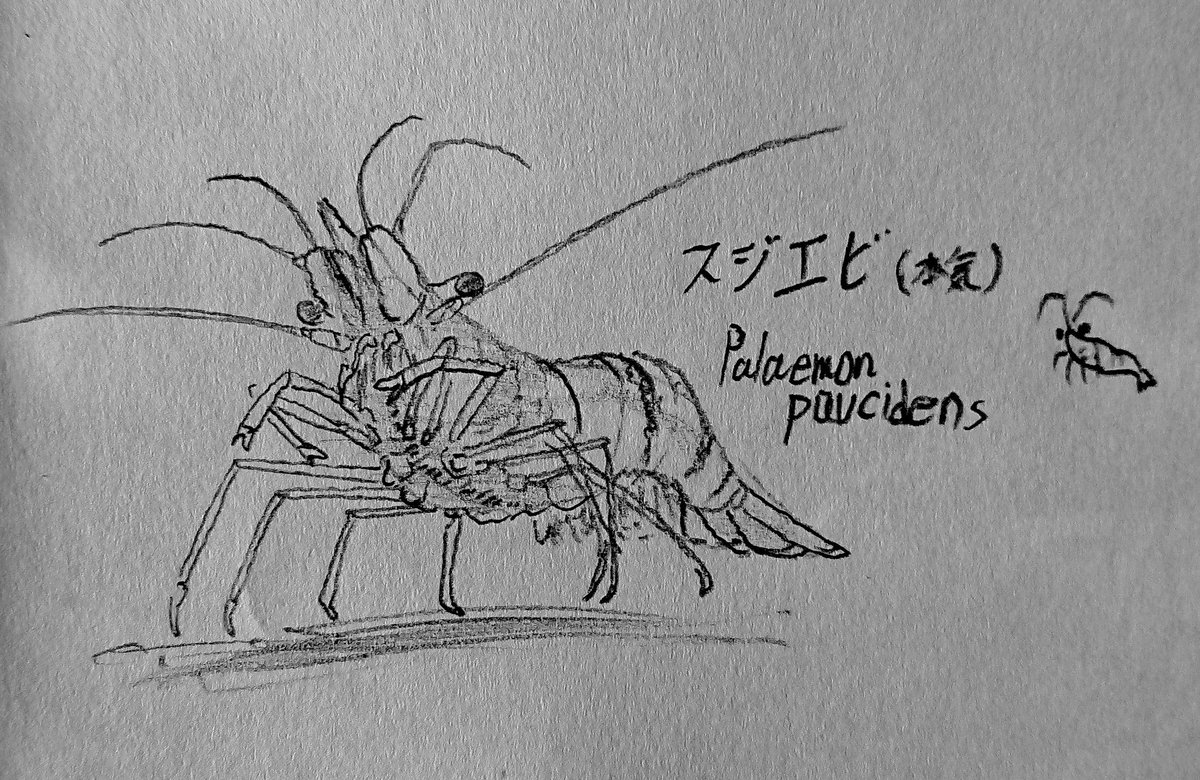 スジエビ(本気)
Palaemon
paucidens